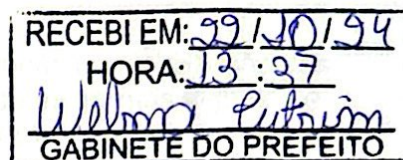 RECEBI EM: 22/10/24
HORA: 13:37
Welma
GABINETE DO PREFEITO